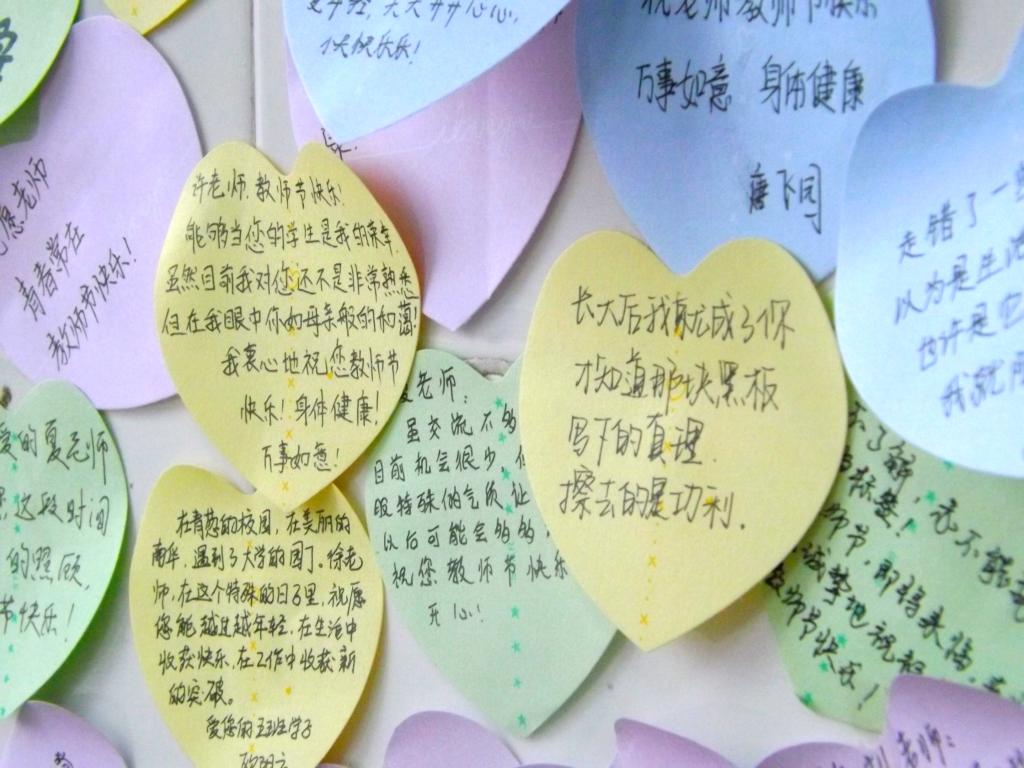 祝老师教师节快乐
万事如意 身体健康
唐飞同
愿老师
青春常在
教师节快乐!
许老师,教师节快乐!
能够当您的学生是我的荣幸
虽然目前我对您还不是非常熟悉
但在我眼中你如母亲般的和蔼!
我衷心地祝您教师节
快乐!身体健康!
万事如意!
长大后我就成了你
才知道那块黑板
写下的真理
擦去的是功利.
走错了一
以为是生活
也许是
我就
老师:
虽交流不多
目前机会很少,
眼特殊的气质让
以后可能会多多
祝您教师节快乐
开心!
爱的夏老师
这段时间
的照顾,
节快乐!
在青葱的校园,在美丽的
南华,遇到了大学的园丁。徐老
师,在这个特殊的日子里,祝愿
您能越过越年轻,在生活中
收获快乐,在工作中收获新
的突破。
爱您的五班学子
了解,
师节,即将来临
诚挚地祝
教师节快乐!
老师: